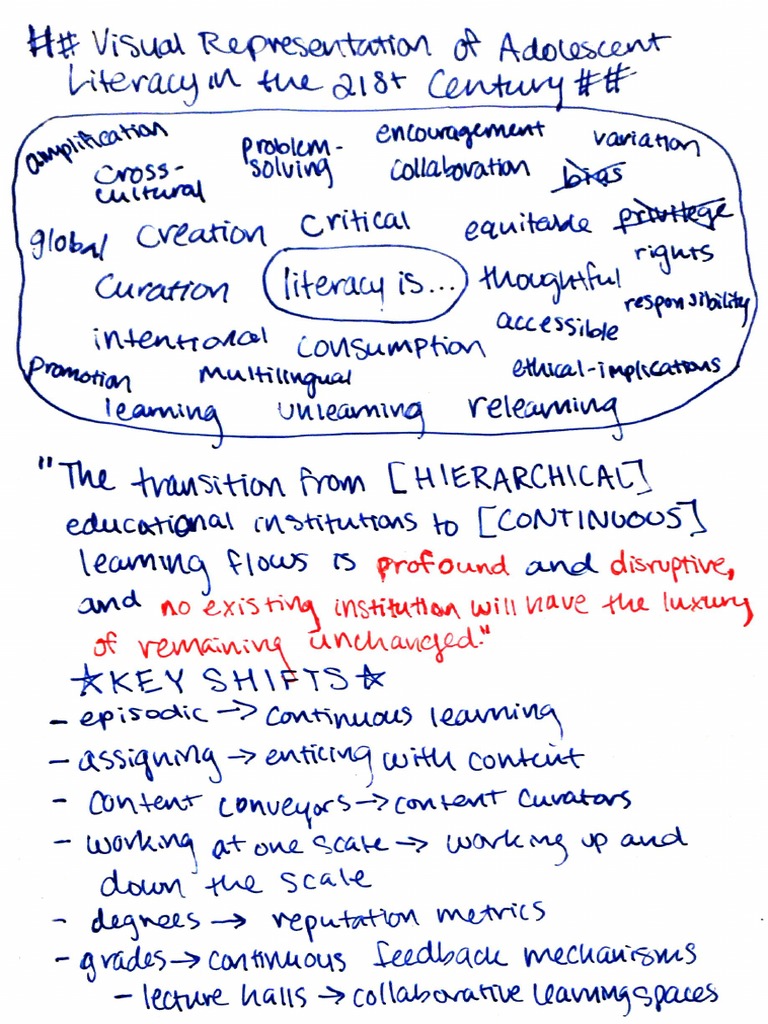 ## Visual Representation of Adolescent
Literacy in the 21st Century ##
amplification
problem-
solving
encouragement
variation
cross-
cultural
collaboration
bias
global
creation
critical
equitable
privilege
rights
curation
literacy is...
thoughtful
responsibility
intentional
consumption
accessible
promotion
multilingual
ethical-implications
learning unlearning relearning
"The transition from [HIERARCHICAL]
educational institutions to [CONTINUOUS]
learning flows is profound and disruptive,
and no existing institution will have the luxury
of remaining unchanged."
☆KEY SHIFTS☆
- episodic → continuous learning
- assigning → enticing with content
- content conveyors → content curators
- working at one scale → working up and
down the scale
- degrees → reputation metrics
- grades → continuous feedback mechanisms
- lecture halls → collaborative learning spaces